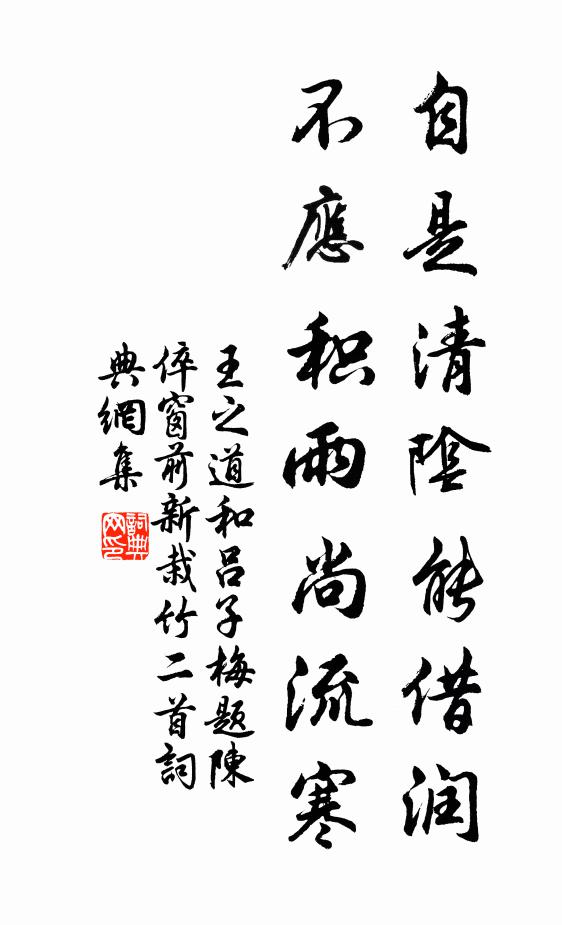 自是清陰能借润
不應积雨尚流寒
王之道和吕子梅题陳
倅窗前新栽竹二首詞
典網集
詞典
网印